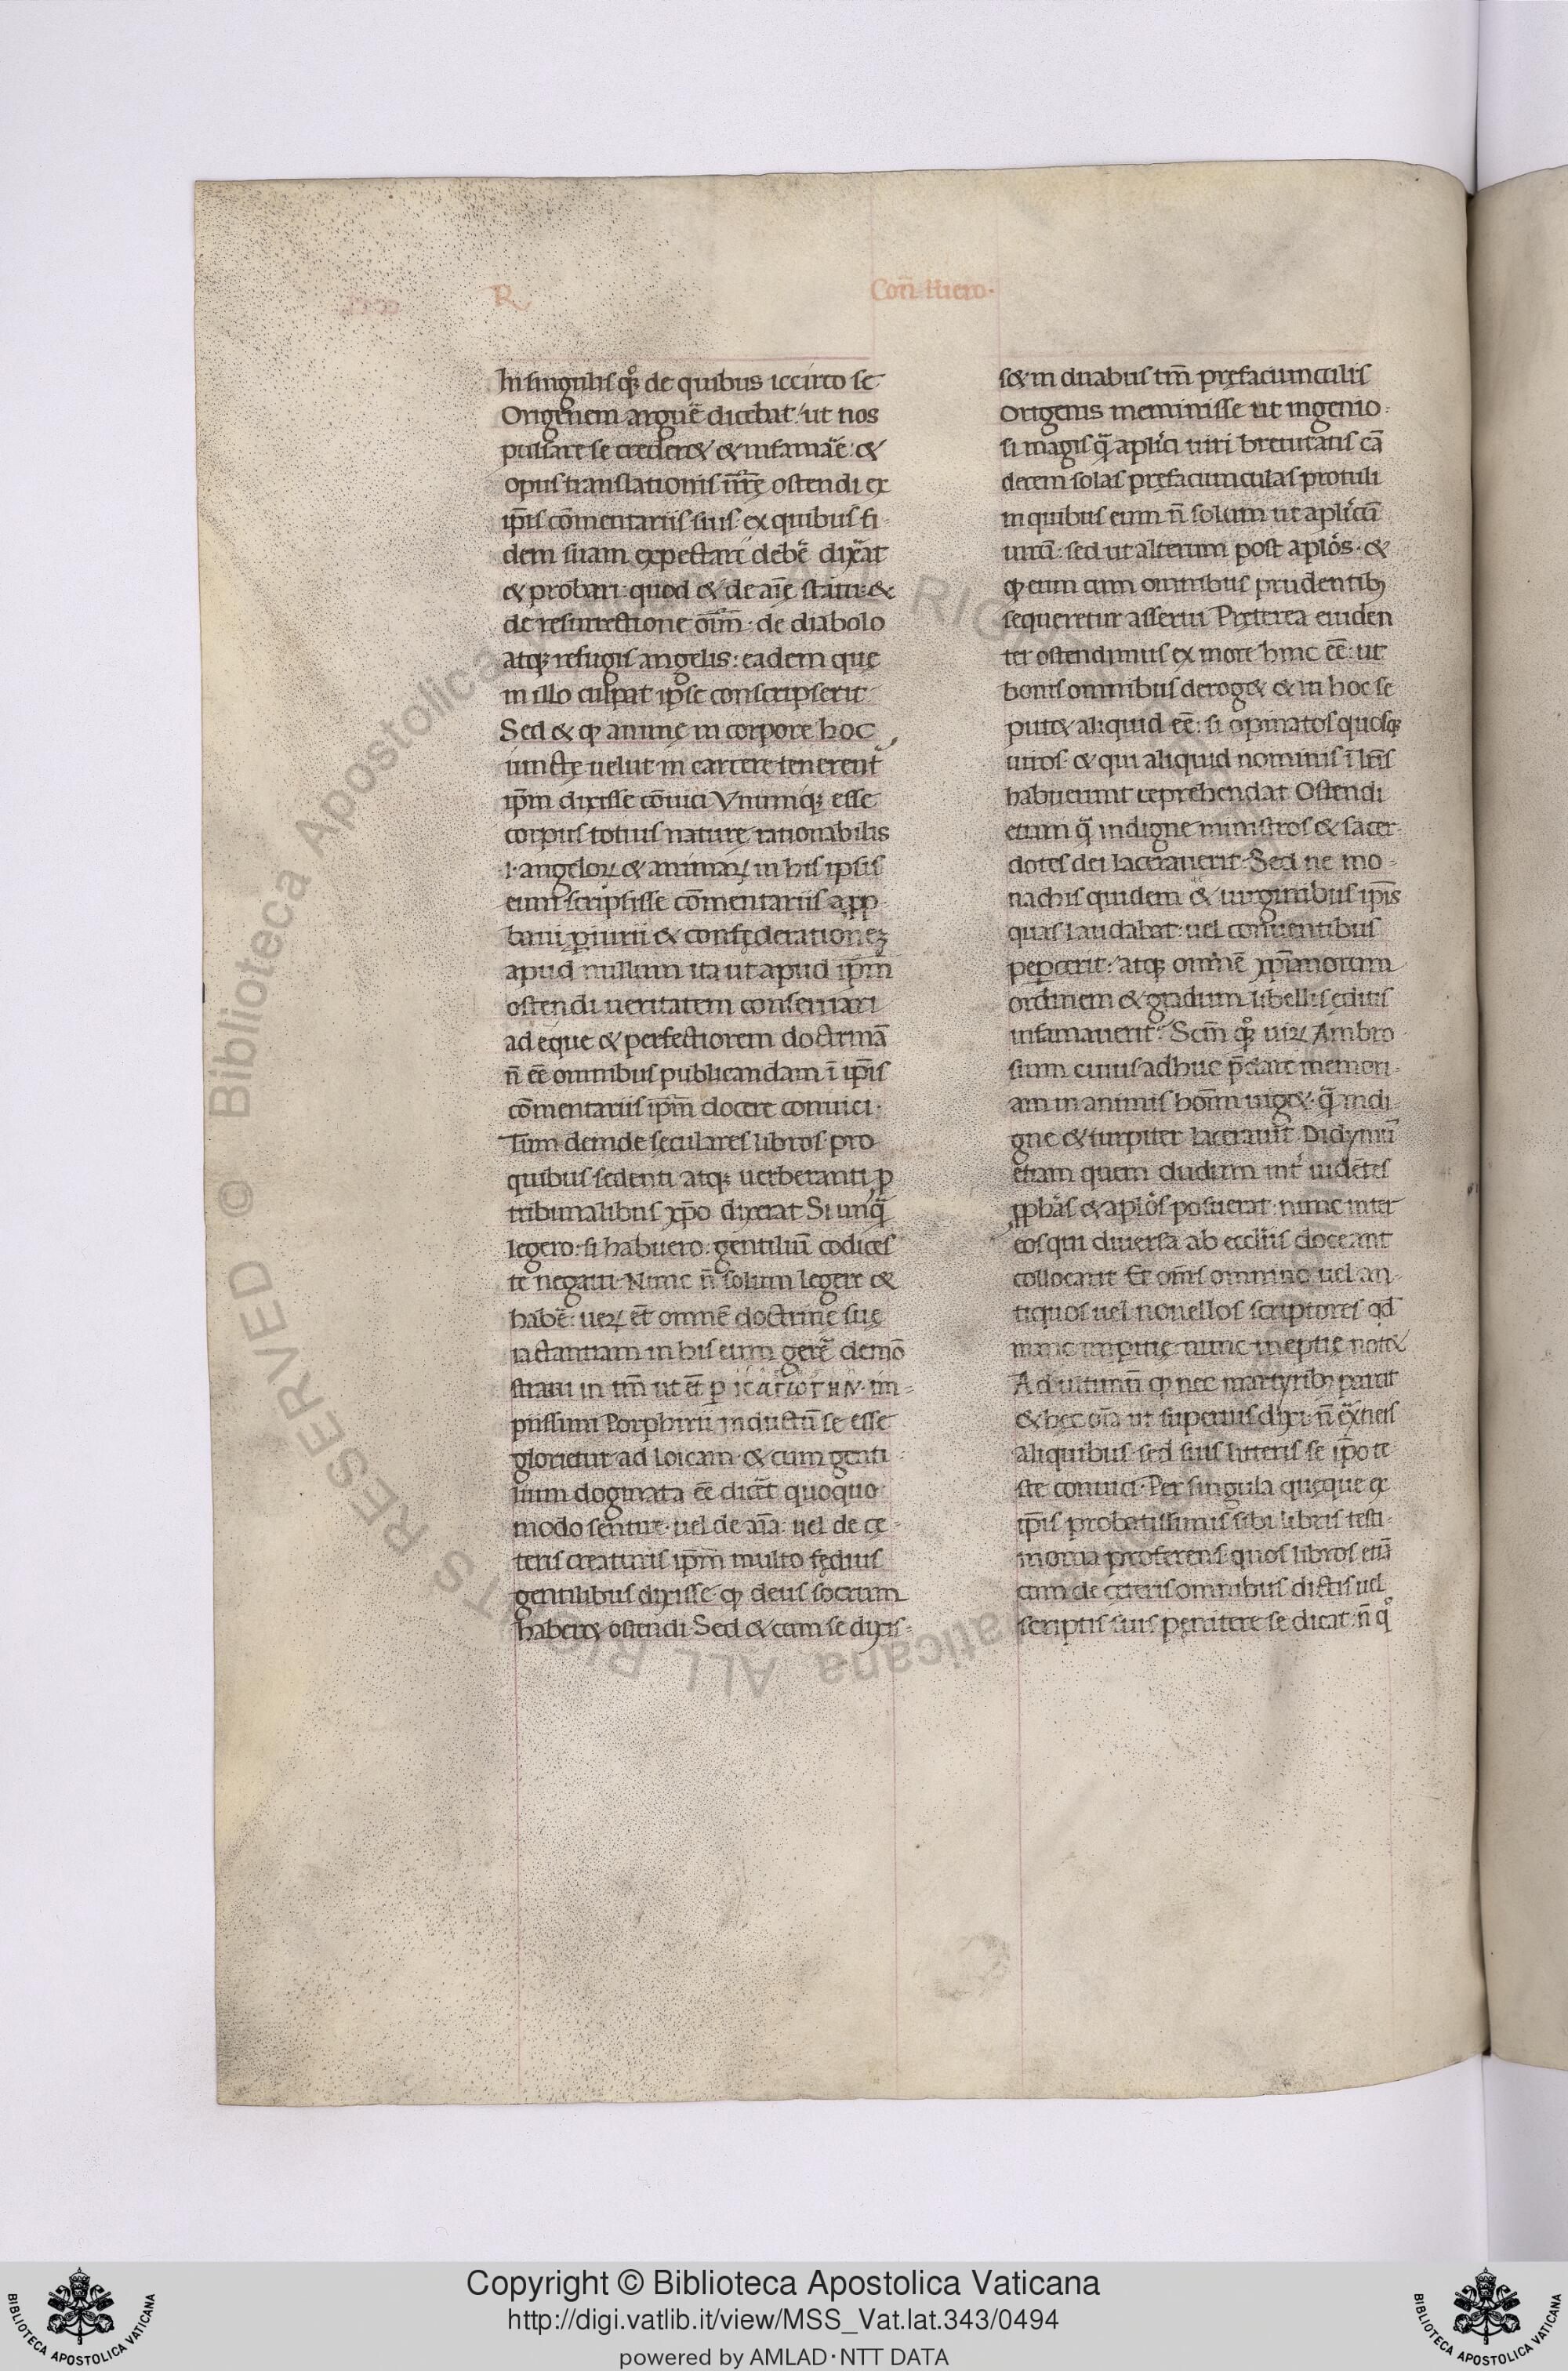 R
Con̄ Hiero·
In singulis q̊ꝫ de quibus iccirco se
Origenem arguē dicebat: ut nos
pulsare se crederet & infamāe: &
opus translationis nr̄ę ostendi ex
ip̄is cōmentariis suis ex quibus fi-
dem suam expectari debē dixāt
& probari quod & de aīę statu: &
de resurrectione oīm· de diabolo
atqꝫ refugis angelis: eadem que
in illo culpat ipse conscripserit
Sed & ꝙ animę in corpore hoc
iunctę uelut in carcere tenerent̄
ip̄m dixisse cōuici Vnumqꝫ esse
corpus totius naturę rationabilis
·i· angeloꝝ & animaꝝ in his ipsis
eum scripsisse cōmentariis app
baui ꝑiurii & confęderationeꝫ
apud nullum ita ut apud ip̄m
ostendi ueritatem conseruari
ad eque & perfectiorem doctrinā
n̄ eē omnibus publicandam ī ip̄is
cōmentariis ip̄m docere conuici·
Tum deinde sęculares libros pro
quibus sedenti atqꝫ uerberanti ꝑ
tribunalibus xp̄o dixerat Si unq̄
legero: si habuero: gentiliū codices
te negaui· Nunc n̄ solum legere &
habē: ueꝝ et̄ omnē doctrinę suę
iactantiam in his eum gerē demō
straui in tm̄ ut et̄ ꝑ
piissimi Porphirii inductū se esse
glorietur ad loicam· & cum genti-
lium dogmata eē dicāt quoquo
modo sentire· uel de aīa: uel de ce-
teris creaturis ip̄m multo fędius
gentilibus dixisse· ꝙ deus socrum
haberet ostendi· Sed & cum se dixis-
set in duabus tm̄ pręfaciunculis
Origenis meminisse ut ingenio-
si magis q̄ apl̄ici uiri breuitatis cā
decem solas pręfaciunculas protuli
in quibus eum n̄ solum ut apl̄icū
uirū: sed ut alterum post apl̄os· &
ꝙ eum cum omnibus prudentibꝫ
sequeretur asserui Pręterea euiden
ter ostendimus ex more hunc eē: ut
bonis omnibus deroget & in hoc se
putet aliquid eē: si opinatos quosqꝫ
uiros· & qui aliquid nominis ī lr̄is
habuerunt reprehendat Ostendi
etiam q̄ indigne ministros & sacer-
dotes dei lacerauerit· Sed ne mo-
nachis quidem & uirginibus ip̄is
quas laudabat: uel continentibus
pepercerit: atqꝫ omnē xp̄ianorum
ordinem & gradum libellis editis
infamauerit· Scm̄ q̊ꝫ uiꝝ Ambro
sium cuius adhuc p̄clare memori-
am in animis hoīm uiget· q̄ indi-
gne & turpiter lacerauīt Didymū
etiam quem dudum int̄ uidētes
ꝓphās & apl̄os posuerat· nunc inter
eos qui diuersa ab eccl̄iis doceant
collocarit Et om̄s omnino uel an-
tiquos uel nouellos scriptores qd̄
nunc imꝑitię· nunc ineptię notet
Ad ultimū ꝙ nec martyribꝫ parcit
& hęc oīa ut superius dixi· n̄ ext̄neis
aliquibus sed suis litteris se ip̄o te
ste conuici· Per singula queque ex
ip̄is probatissimis sibi libris testi-
monia proferens· quos libros etiā
cum de ceteris omnibus dictis uel
scriptis suis penitere se dicat· n̄ q̊
Copyright © Biblioteca Apostolica Vaticana
http://digi.vatlib.it/view/MSS_Vat.lat.343/0494
powered by AMLAD·NTT DATA
BIBLIOTECA APOSTOLICA VATICANA
BIBLIOTECA APOSTOLICA VATICANA